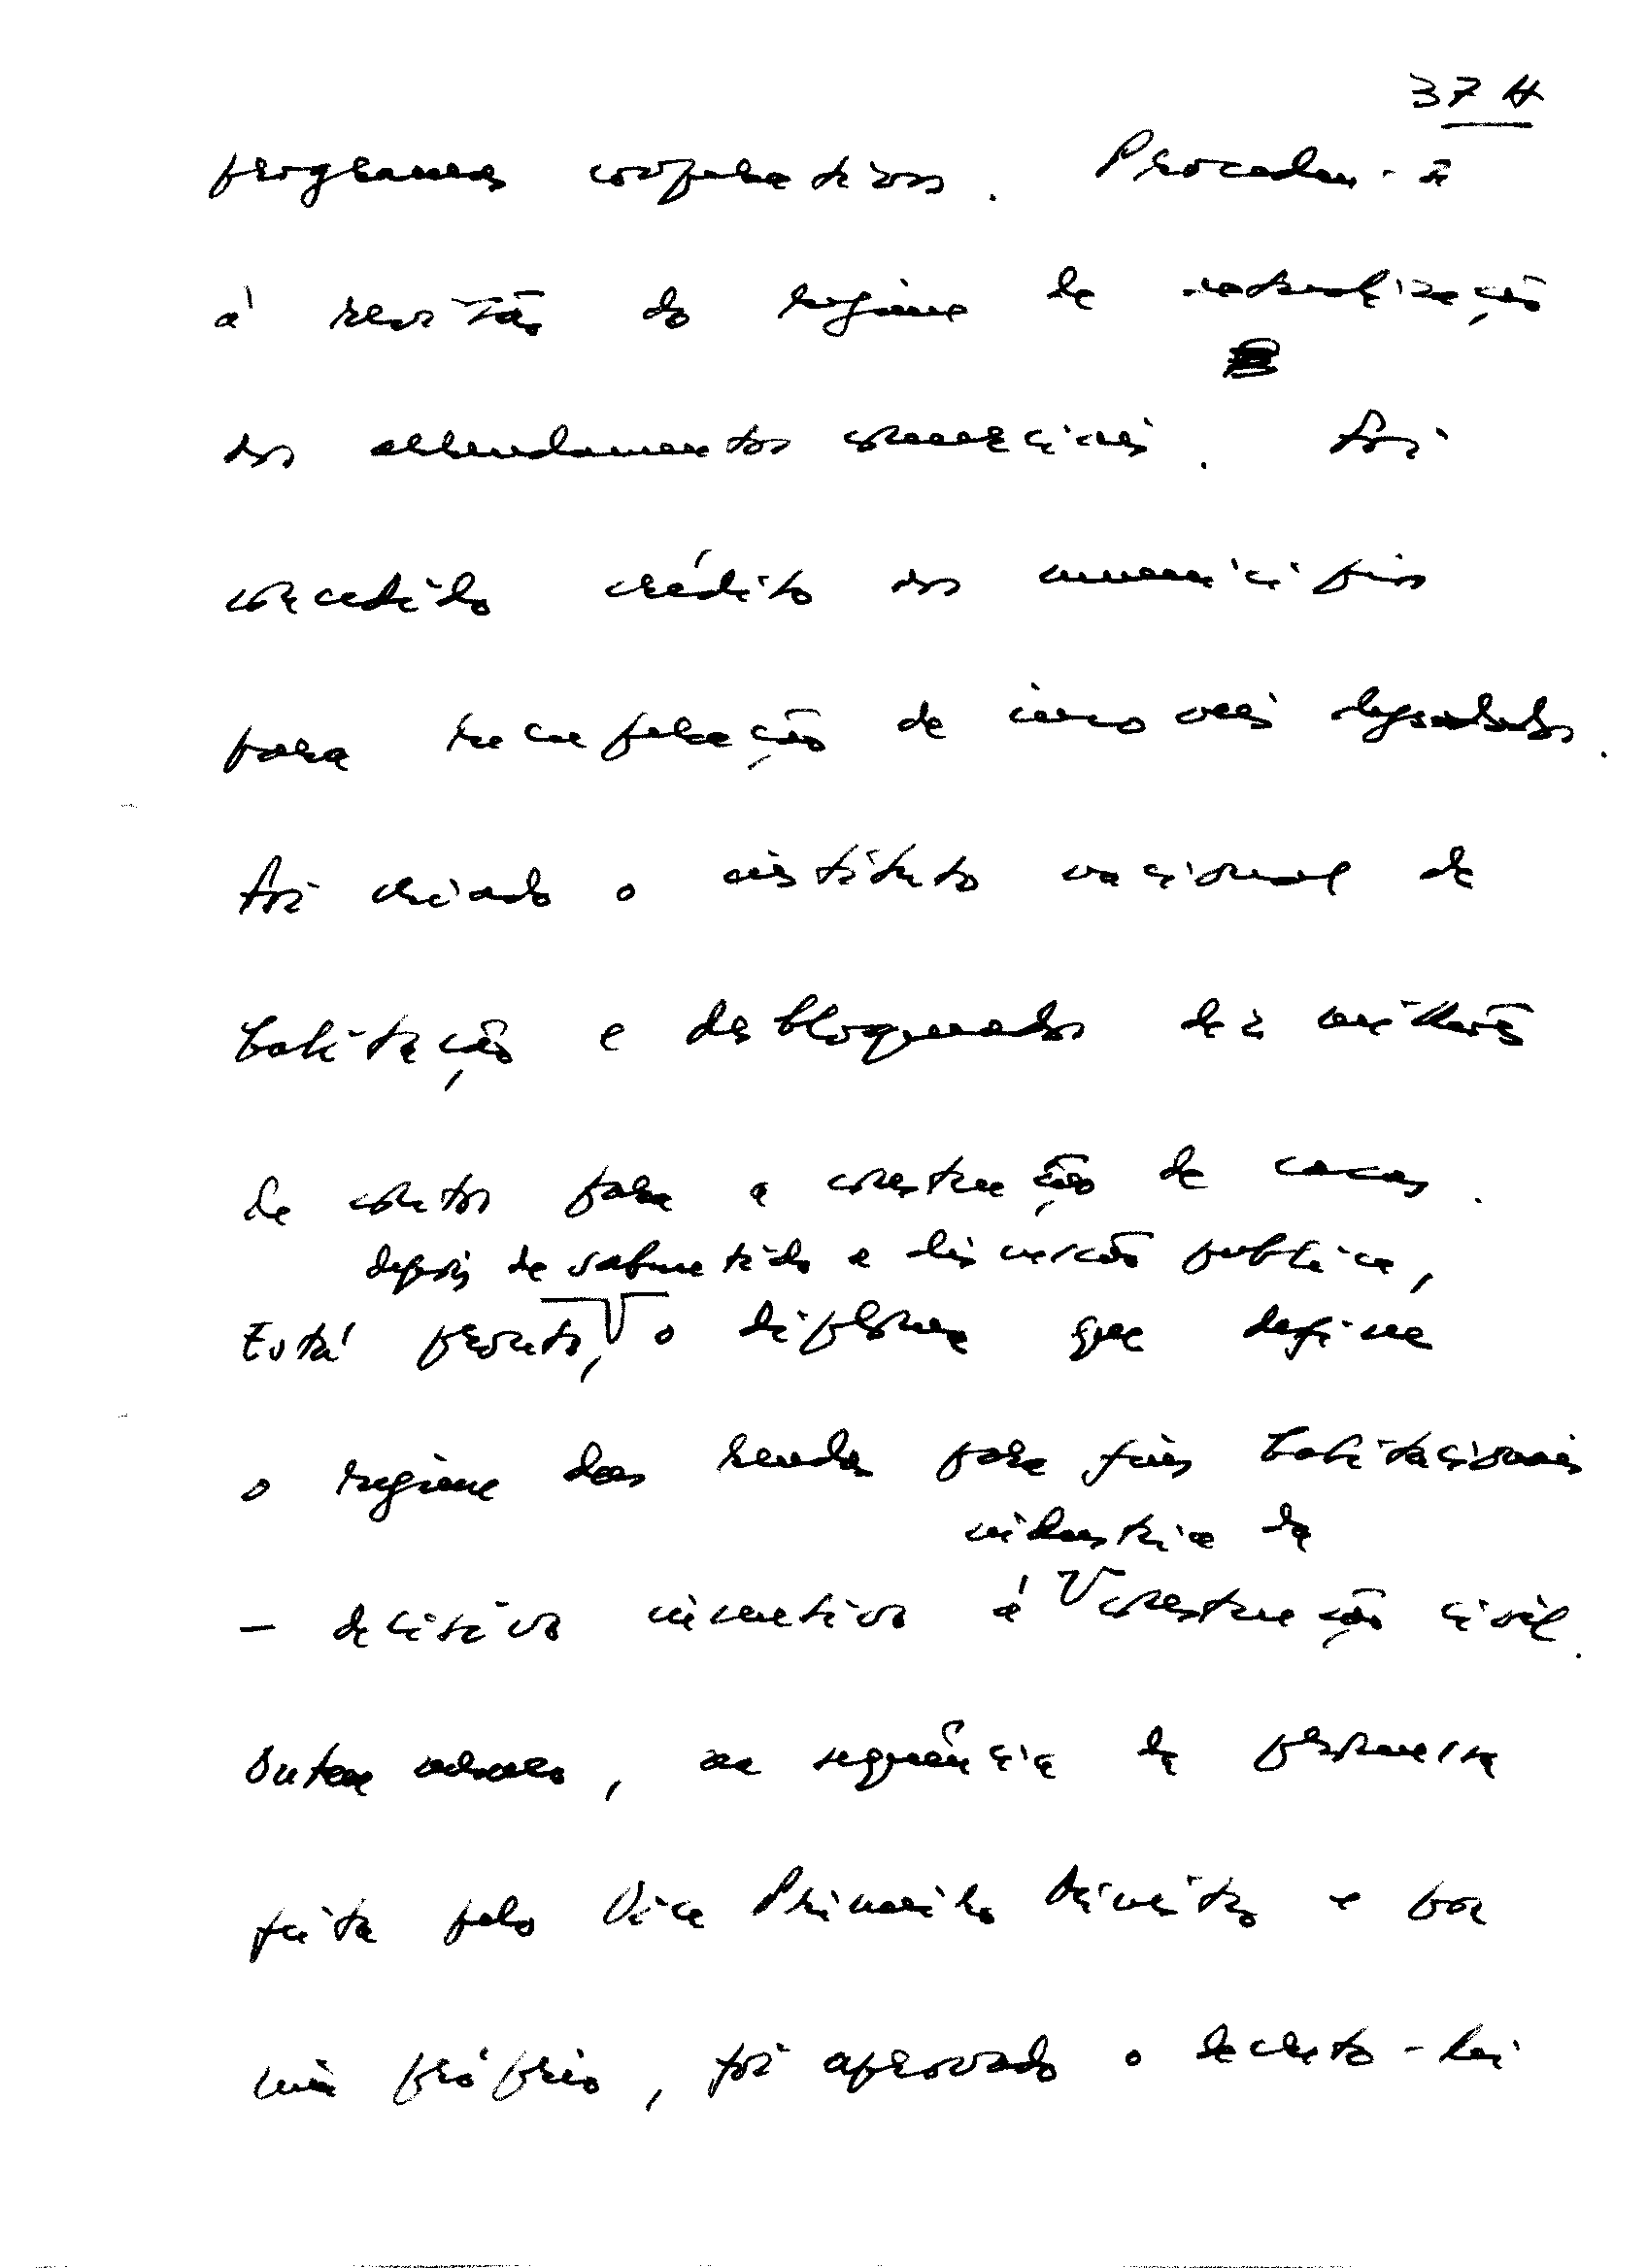 37 H
programas cooperativos. Procedeu-se
à revisão do regime de actualização
dos arrendamentos comerciais. Foi
concedido crédito aos municípios
para recuperação de imóveis degradados.
Foi criado o instituto nacional de
habitação e desbloqueados dez milhões
de contos para a construção de casas.
depois de submetido a discussão publica,
Está pronto, o diploma que define
o regime das rendas para fins habitacionais
industria da
— decisivo incentivo à construção civil.
Outra , na sequência da promessa
feita pelo Vice Primeiro Ministro e por
mim próprio, foi aprovado o decreto-lei